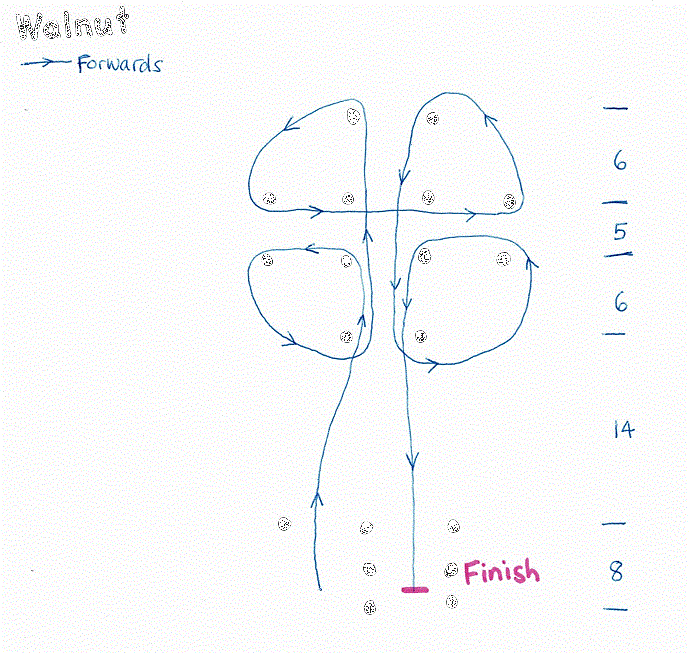 Walnut
Forwards
6
5
6
14
Finish
8